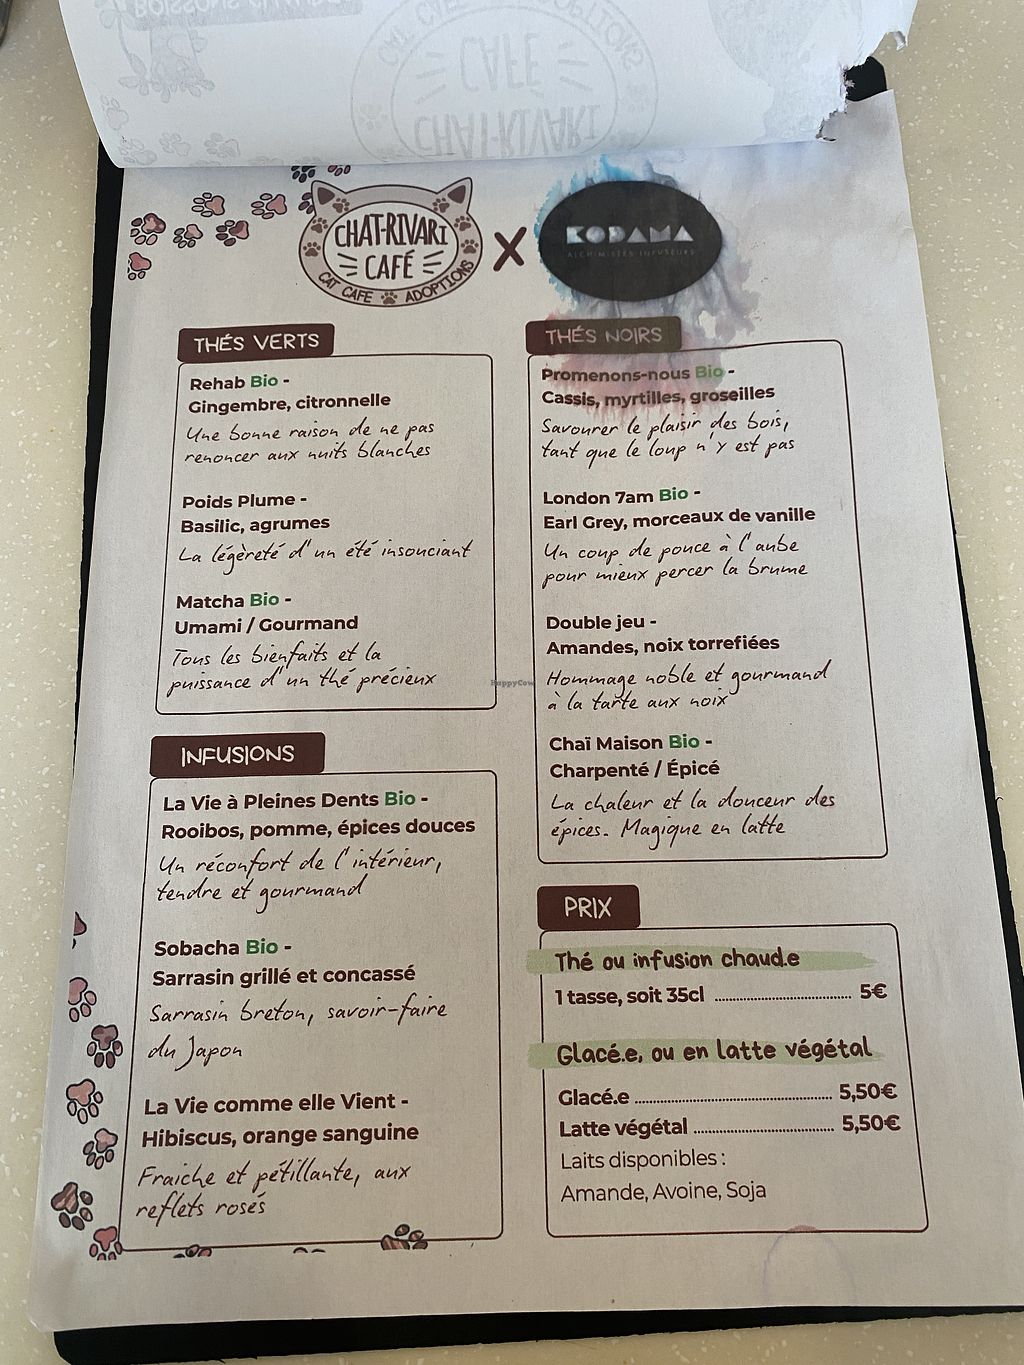 CHAT-RIVARI
CAFÉ
CAT CAFE ADOPTIONS
X
KODAMA
ALCHIMISTES INFUSEURS
THÉS VERTS
Rehab Bio -
Gingembre, citronnelle
Une bonne raison de ne pas
renoncer aux nuits blanches
Poids Plume -
Basilic, agrumes
La légèreté d'un été insouciant
Matcha Bio -
Umami / Gourmand
Tous les bienfaits et la
puissance d'un thé précieux
INFUSIONS
La Vie à Pleines Dents Bio -
Rooibos, pomme, épices douces
Un réconfort de l'intérieur,
tendre et gourmand
Sobacha Bio -
Sarrasin grillé et concassé
Sarrasin breton, savoir-faire
du Japon
La Vie comme elle Vient -
Hibiscus, orange sanguine
Fraiche et pétillante, aux
reflets rosés
THÉS NOIRS
Promenons-nous Bio -
Cassis, myrtilles, groseilles
Savourer le plaisir des bois,
tant que le loup n'y est pas
London 7am Bio -
Earl Grey, morceaux de vanille
Un coup de pouce à l'aube
pour mieux percer la brume
Double jeu -
Amandes, noix torrefiées
Hommage noble et gourmand
à la tarte aux noix
Chaï Maison Bio -
Charpenté / Épicé
La chaleur et la douceur des
épices. Magique en latte
PRIX
Thé ou infusion chaud.e
1 tasse, soit 35cl ........ 5€
Glacé.e, ou en latte végétal
Glacé.e ........ 5,50€
Latte végétal ........ 5,50€
Laits disponibles :
Amande, Avoine, Soja
HappyCow